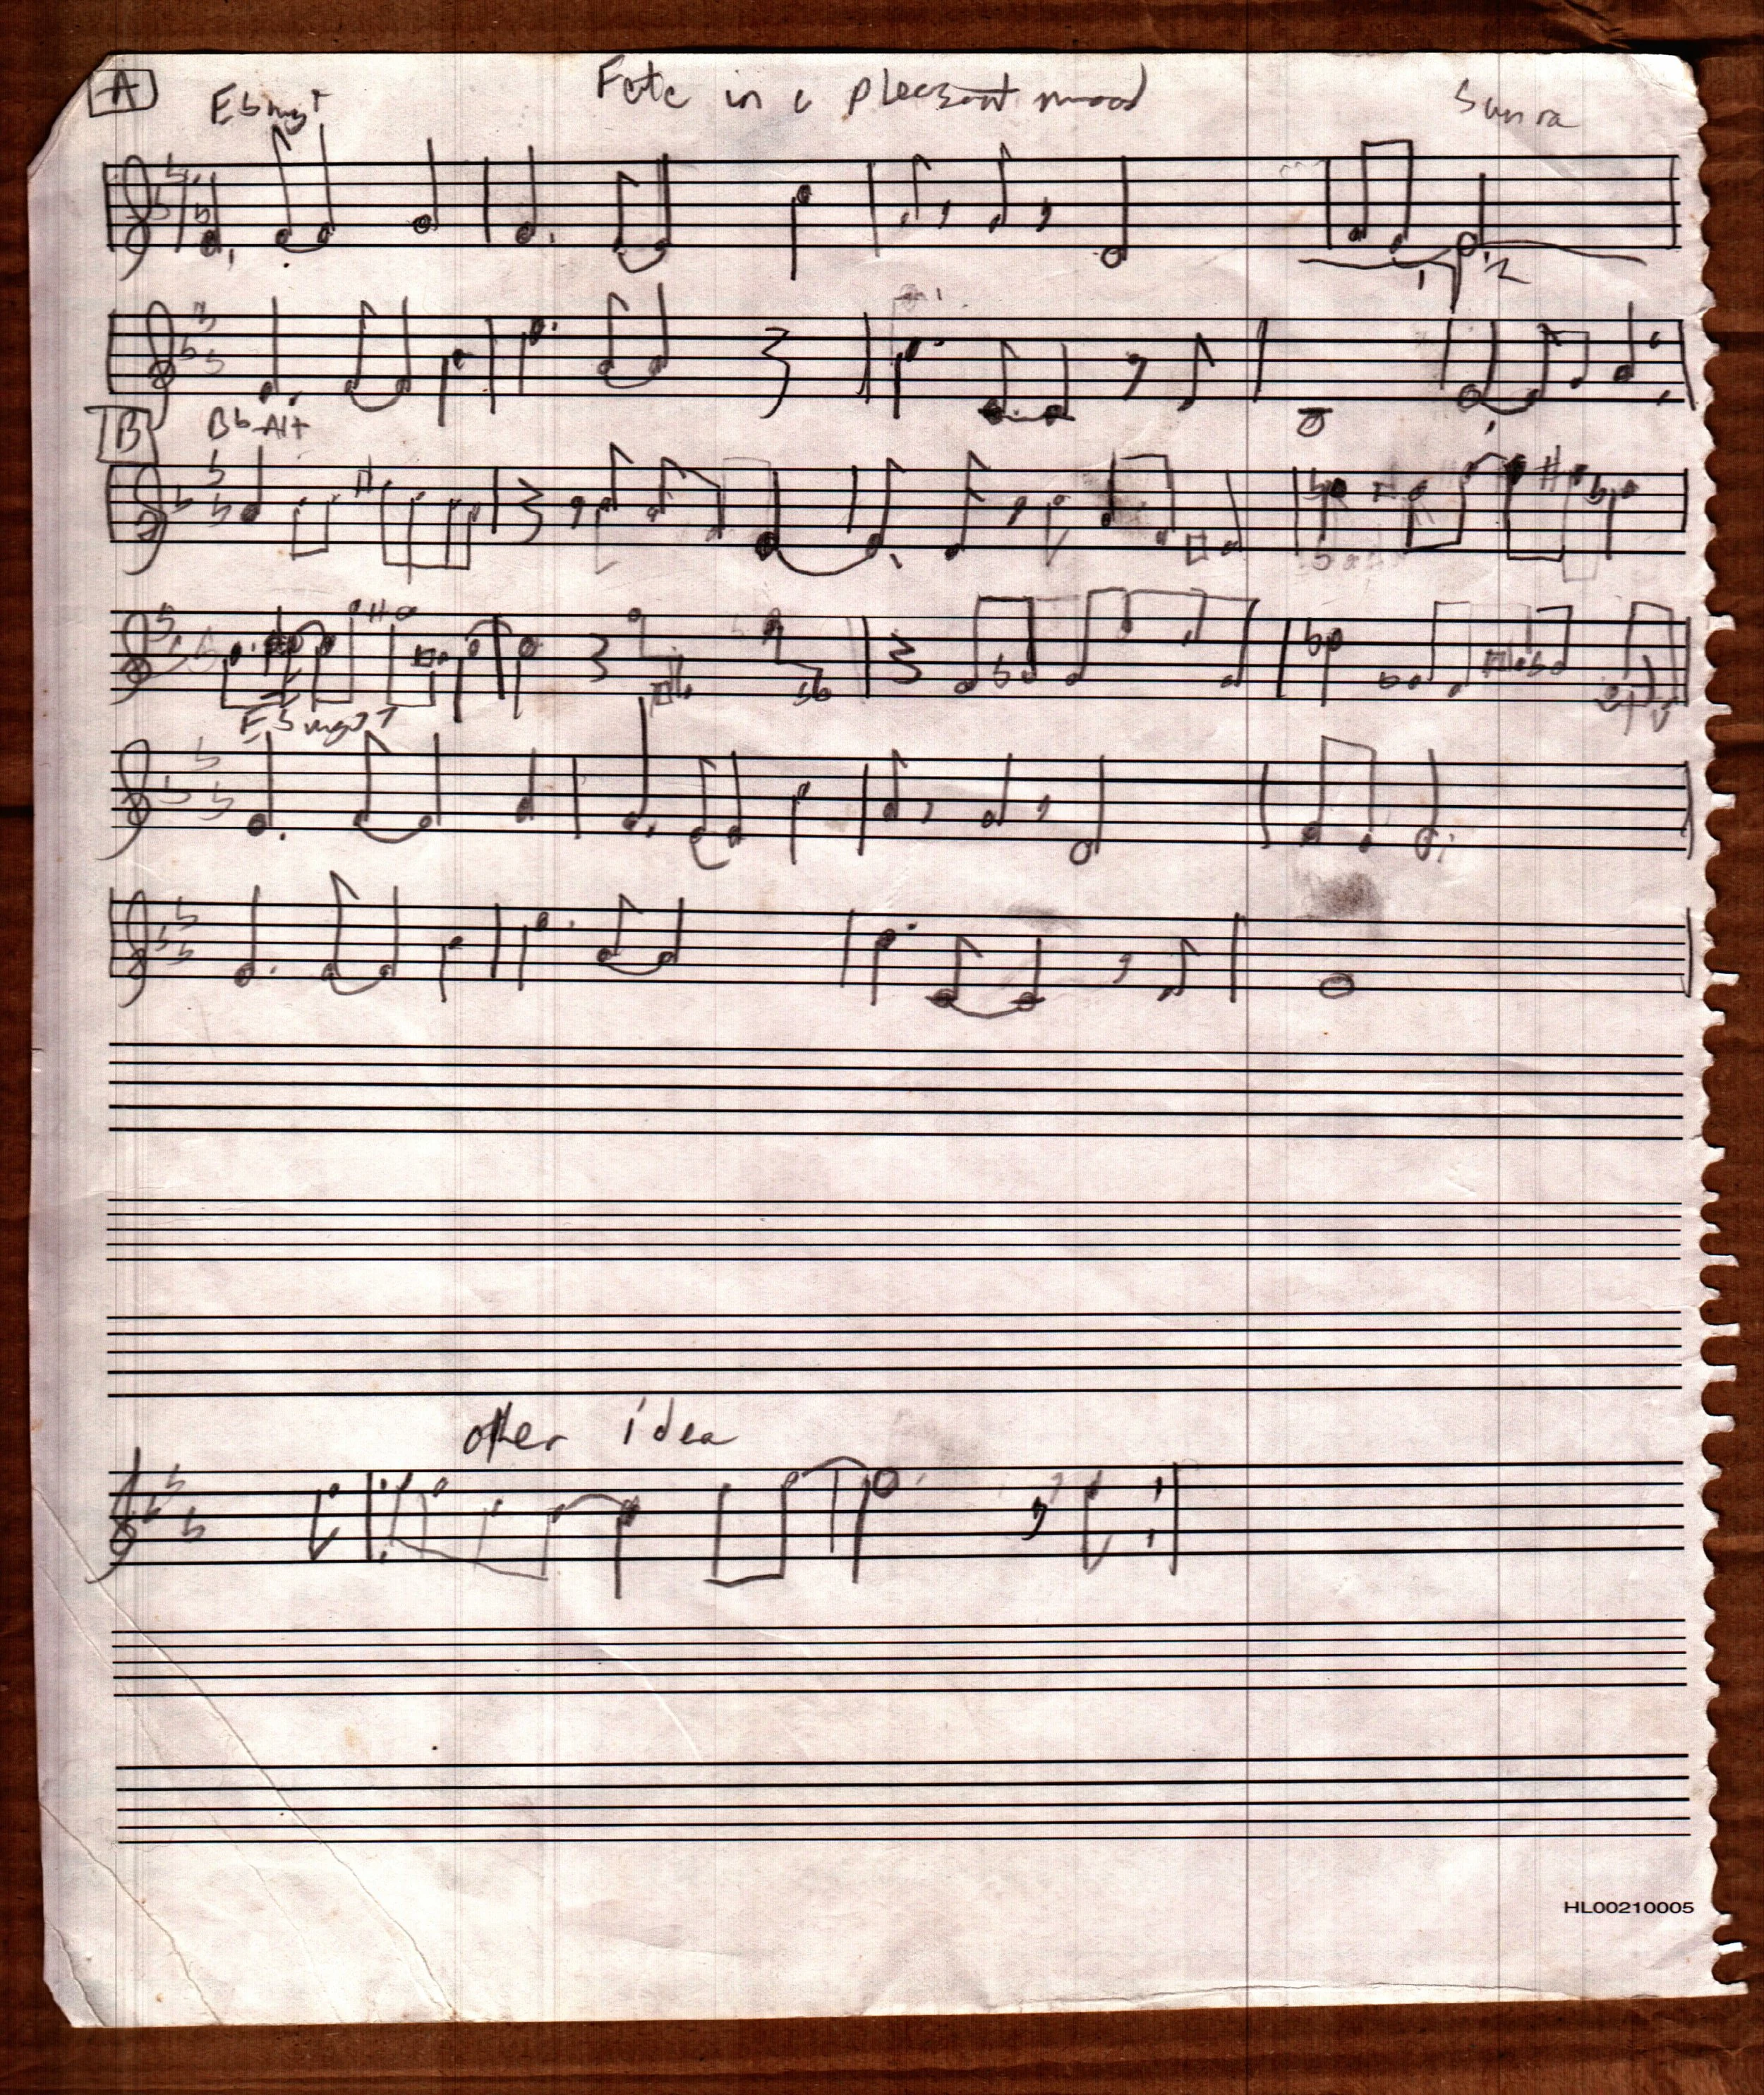 A
Fate in a pleasant mood
Sun ra
Eb maj7
B
Bb Alt
Eb maj7
other idea
HL00210005